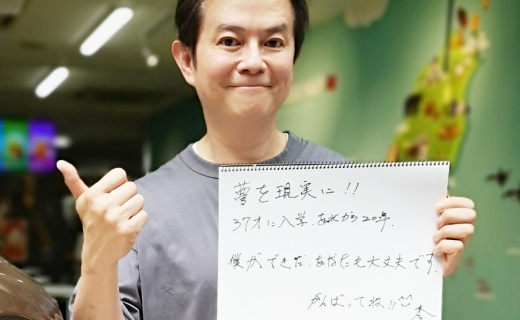 夢を現実に!!
37才に入学、あれから20年、
僕ができた、あなたも大丈夫です。
がんばってね!!^^
李